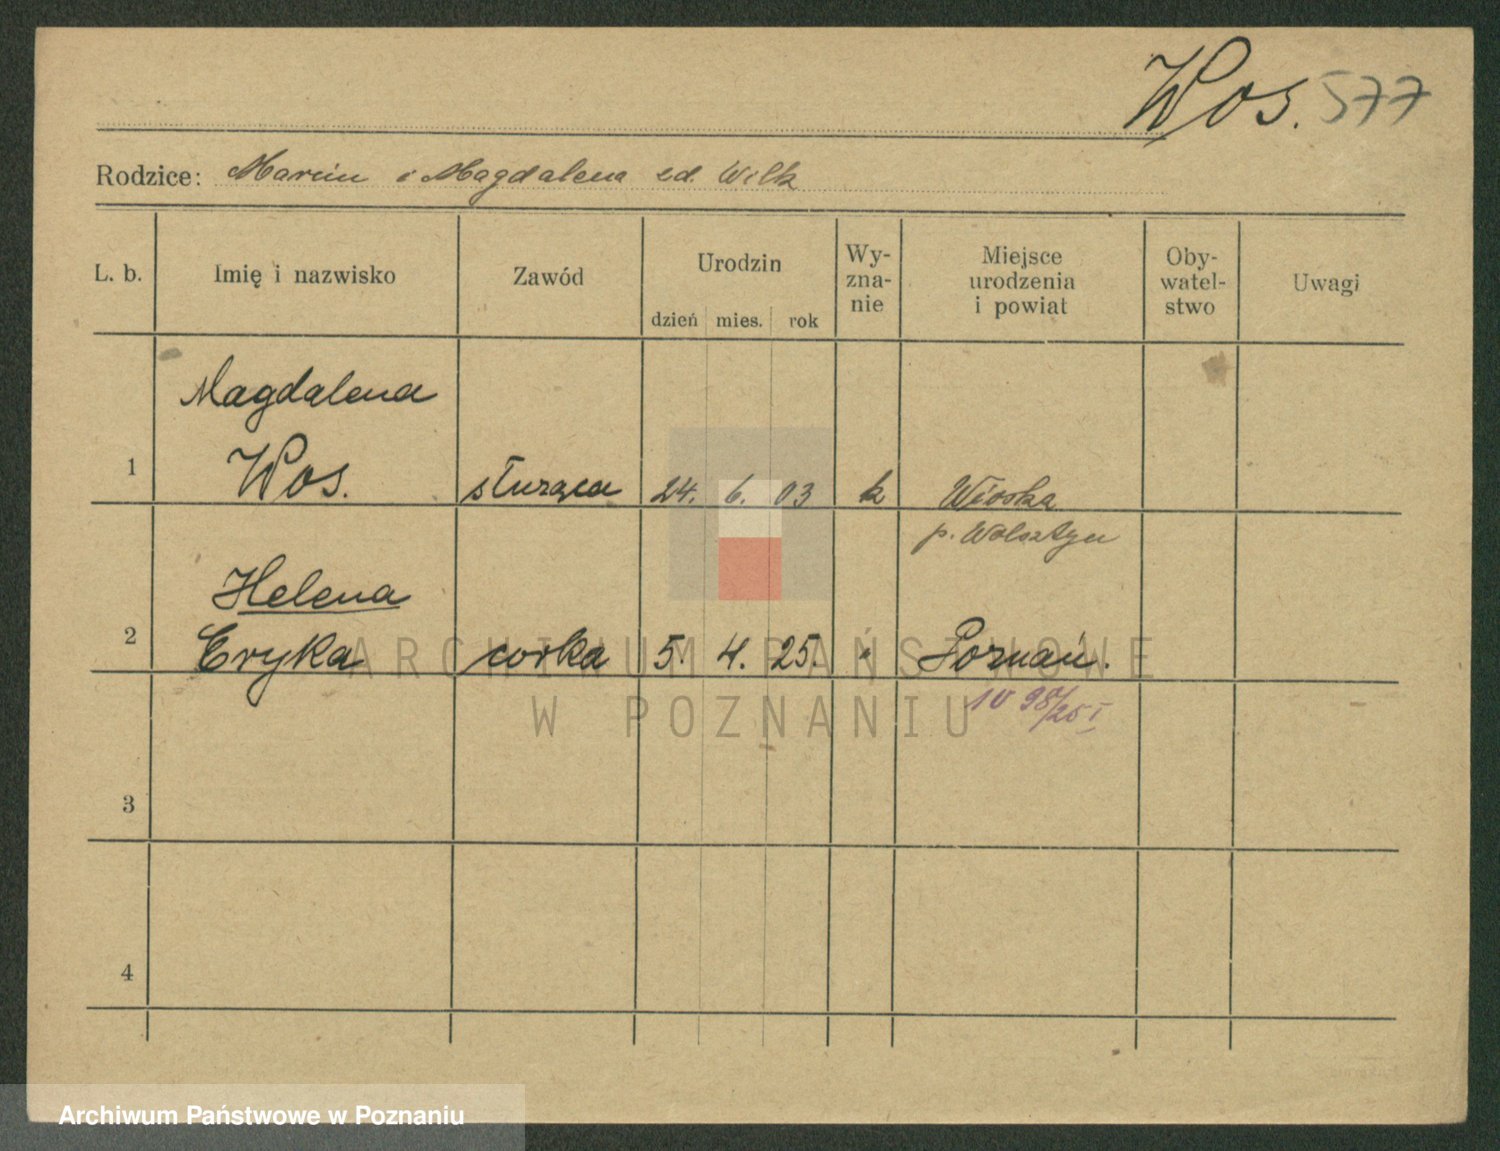 Wos. 577
Rodzice: Marcin i Magdalena zd. Wilk
L. b. Imię i nazwisko Zawód Urodzin Wy-zna-nie Miejsce urodzenia i powiat Oby-watel-stwo Uwagi
dzień mies. rok
Magdalena
1 Wos. służąca 24. 6. 03 k Wioska
p. Wolsztyn
Helena
2 Eryka corka 5. 4. 25. " Poznań.
ARCHIWUM PAŃSTWOWE
W POZNANIU
3
4
Archiwum Państwowe w Poznaniu